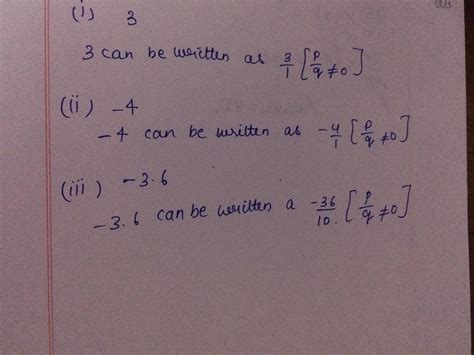 (i) 3
3 can be written as 3/1 [p/q ≠0]
(ii) -4
-4 can be written as -4/1 [p/q ≠0]
(iii) -3.6
-3.6 can be written a -36/10. [p/q ≠0]